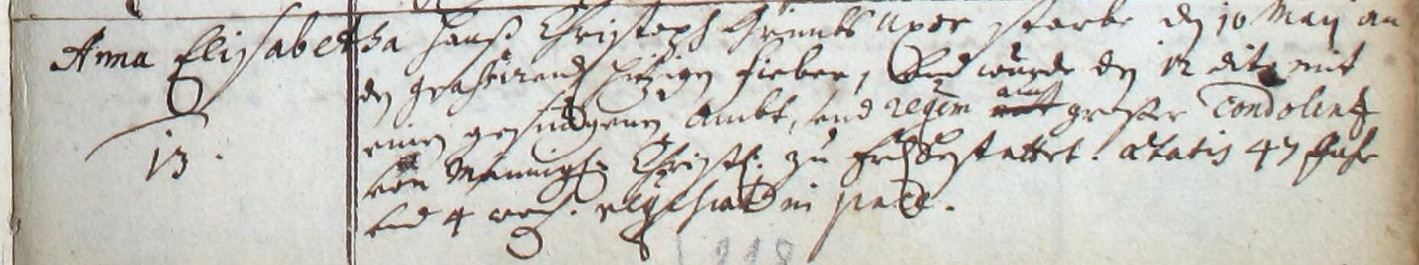 Anna Elisabetha Hanß Christoph Grimbs uxor starbe den 10 Maij an
den grassirend hizigen Fieber, und wurde den 12 dito mit
einen gesungenen Ambt, und requiem auch großer Condolentz
13.
von Männiglich Christl. zu Erd bestattet. ætatis 47 Jahr
und 4 woch. requiescat in pace.